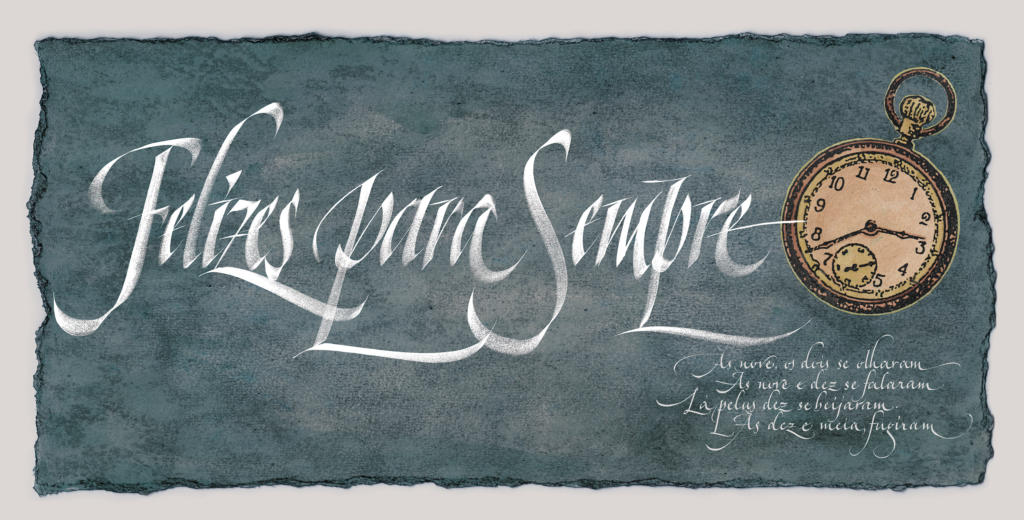 Felizes para Sempre
11 12 1
10
9 3
8 4
7 5
Às nove, os dois se olharam
Às nove e dez se falaram
Lá pelas dez se beijaram.
Às dez e meia, fugiram